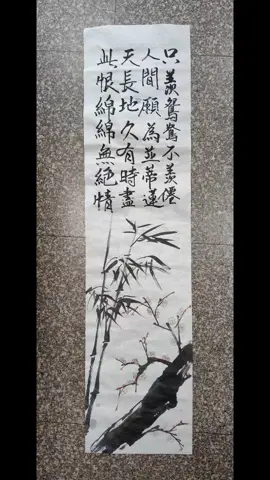 只羨鴛鴦不羨僊
人間願為並蒂蓮
天長地久有時盡
此恨綿綿無絕情